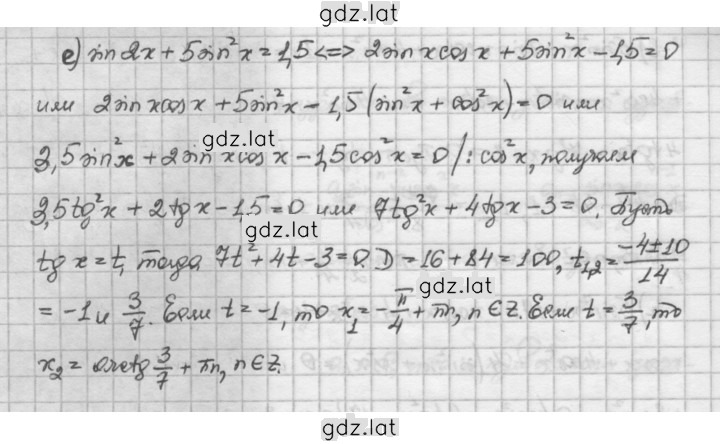 gdz.lat
е) sin2x + 5sin²x = 1,5 <=> 2sinxcosx + 5sin²x − 1,5 = 0
или 2sinxcosx + 5sin²x − 1,5(sin²x + cos²x) = 0 или
gdz.lat
3,5sin²x + 2sinxcosx − 1,5cos²x = 0 /: cos²x, получаем
3,5tg²x + 2tgx − 1,5 = 0 или 7tg²x + 4tgx − 3 = 0. Пусть
gdz.lat
tg x = t, тогда 7t² + 4t − 3 = 0. D = 16 + 84 = 100, t₁,₂ = (−4 ± 10)/14
gdz.lat
= −1 и 3/7. Если t = −1, то x₁ = −π/4 + πn, n ∈ Z. Если t = 3/7, то
x₂ = arctg 3/7 + πn, n ∈ Z.
gdz.lat
gdz.lat